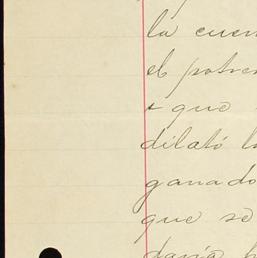 la cuen
el potre
que
dilató l
ganado
que se
daría h